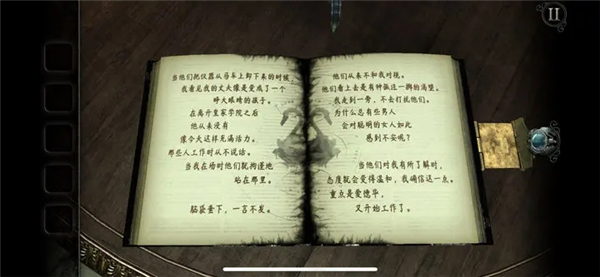 当他们把仪器从马车上卸下来的时候,
我看见我的丈夫像是变成了一个
睁大眼睛的孩子。
在离开皇家学院之后
他从未没有
像今天这样充满活力。
那些人工作时从不说话。
当我在场时他们就拘谨地
站在那里。
脑袋垂下,一言不发。
他们从来不和我对视。
他们看上去是有种振远一搏的渴望。
我走到一旁,不去打扰他们。
为什么总有些男人
会对聪明的女人如此
感到不安呢?
当他们对我有所了解时,
态度就会变得温和,我确信这一点。
重点是爱德华,
又开始工作了。